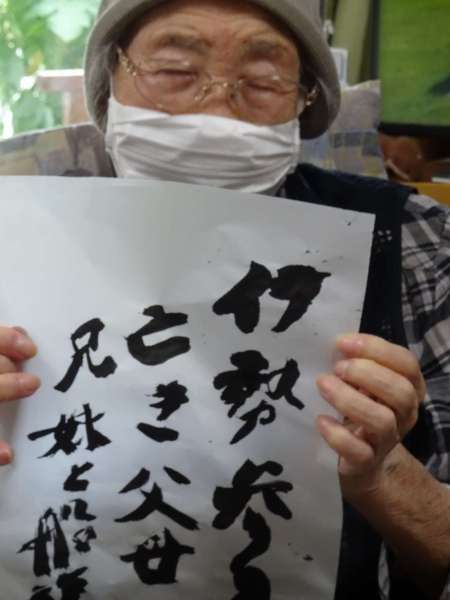 伊勢参り
亡き父母
兄妹と船